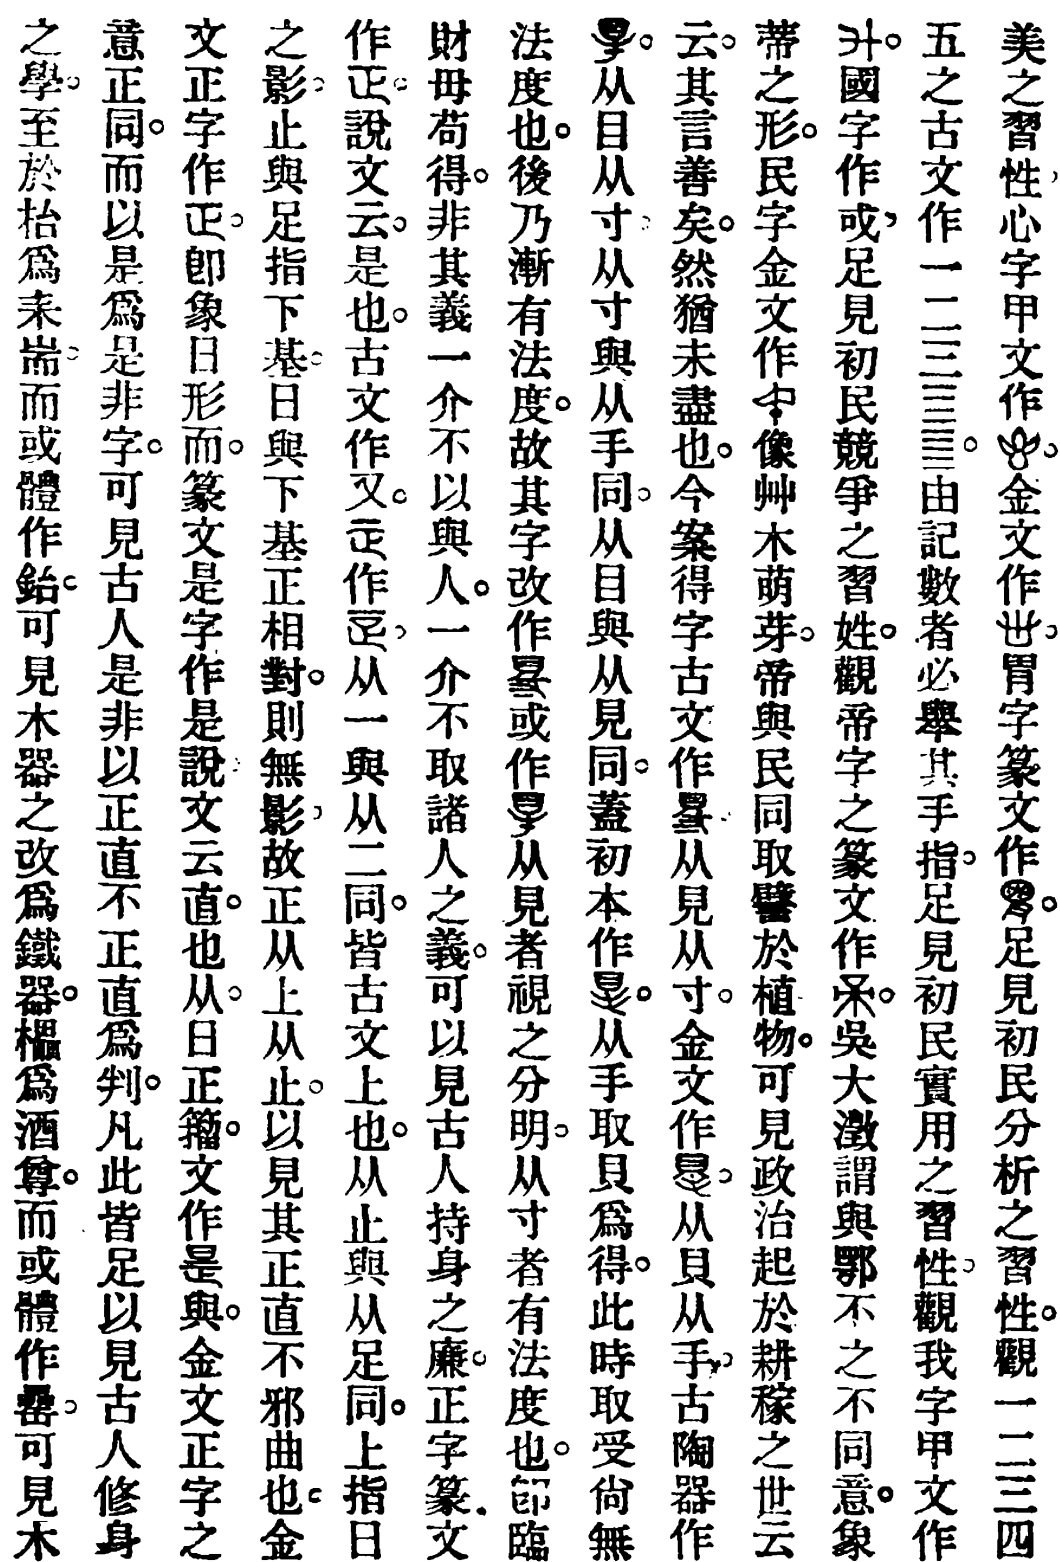 美之習性，心字甲文作。金文作，胃字篆文作。足見初民分析之習性。觀一二三四
五之古文作一二三亖。由記數者必舉其手指。足見初民實用之習性。觀我字甲文作
。國字作或，足見初民競爭之習姓。觀帝字之篆文作。吳大澂謂與鄂不之不同意。象
蒂之形。民字金文作像艸木萌芽。帝與民同取譬於植物。可見政治起於耕稼之世云
云。其言善矣。然猶未盡也。今案得字古文作从見从寸。金文作。从貝从手，古陶器作
。从目从寸。从寸與从手同。从目與从見同。蓋初本作。从手取貝爲得。此時取受尙無
法度也。後乃漸有法度。故其字改作或作从見者視之分明。从寸者有法度也。卽臨
財毋苟得。非其義一介不以與人。一介不取諸人之義。可以見古人持身之廉。正字篆文
作。說文云。是也。古文作又。作，从一與从二同。皆古文上也。从止與从足同。上指日
之影。止與足指下基。日與下基正相對。則無影，故正从上从止。以見其正直不邪曲也。金
文正字作。卽象日形而。篆文是字作是說文云直。也从。日正籀。文作是與。金文正字之
意正同。而以是爲是非字。可見古人是非以正直不正直爲判。凡此皆足以見古人修身
之學。至於枱爲耒耑。而或體作鈶。可見木器之改爲鐵器。櫑爲酒尊。而或體作罍。可見木